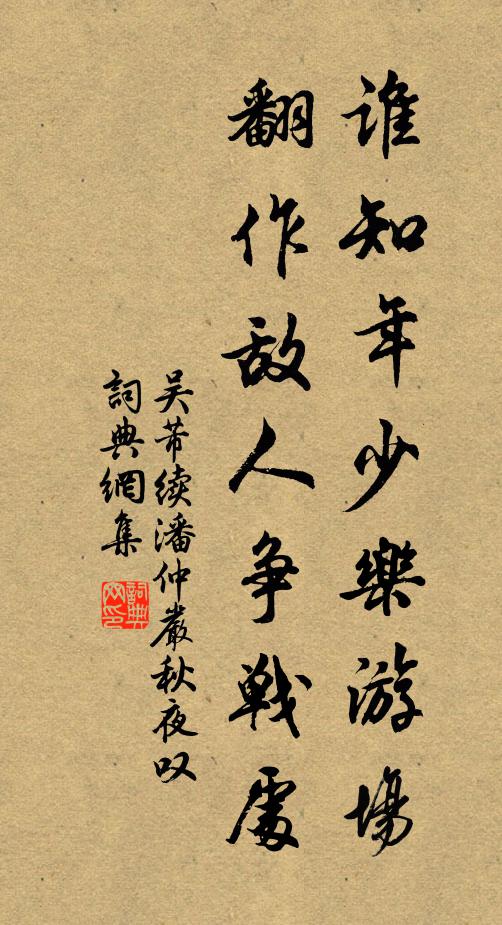 誰知年少樂游場
翻作敌人争戰處
吴芾续潘仲嚴秋夜叹
詞典網集
詞典
网印